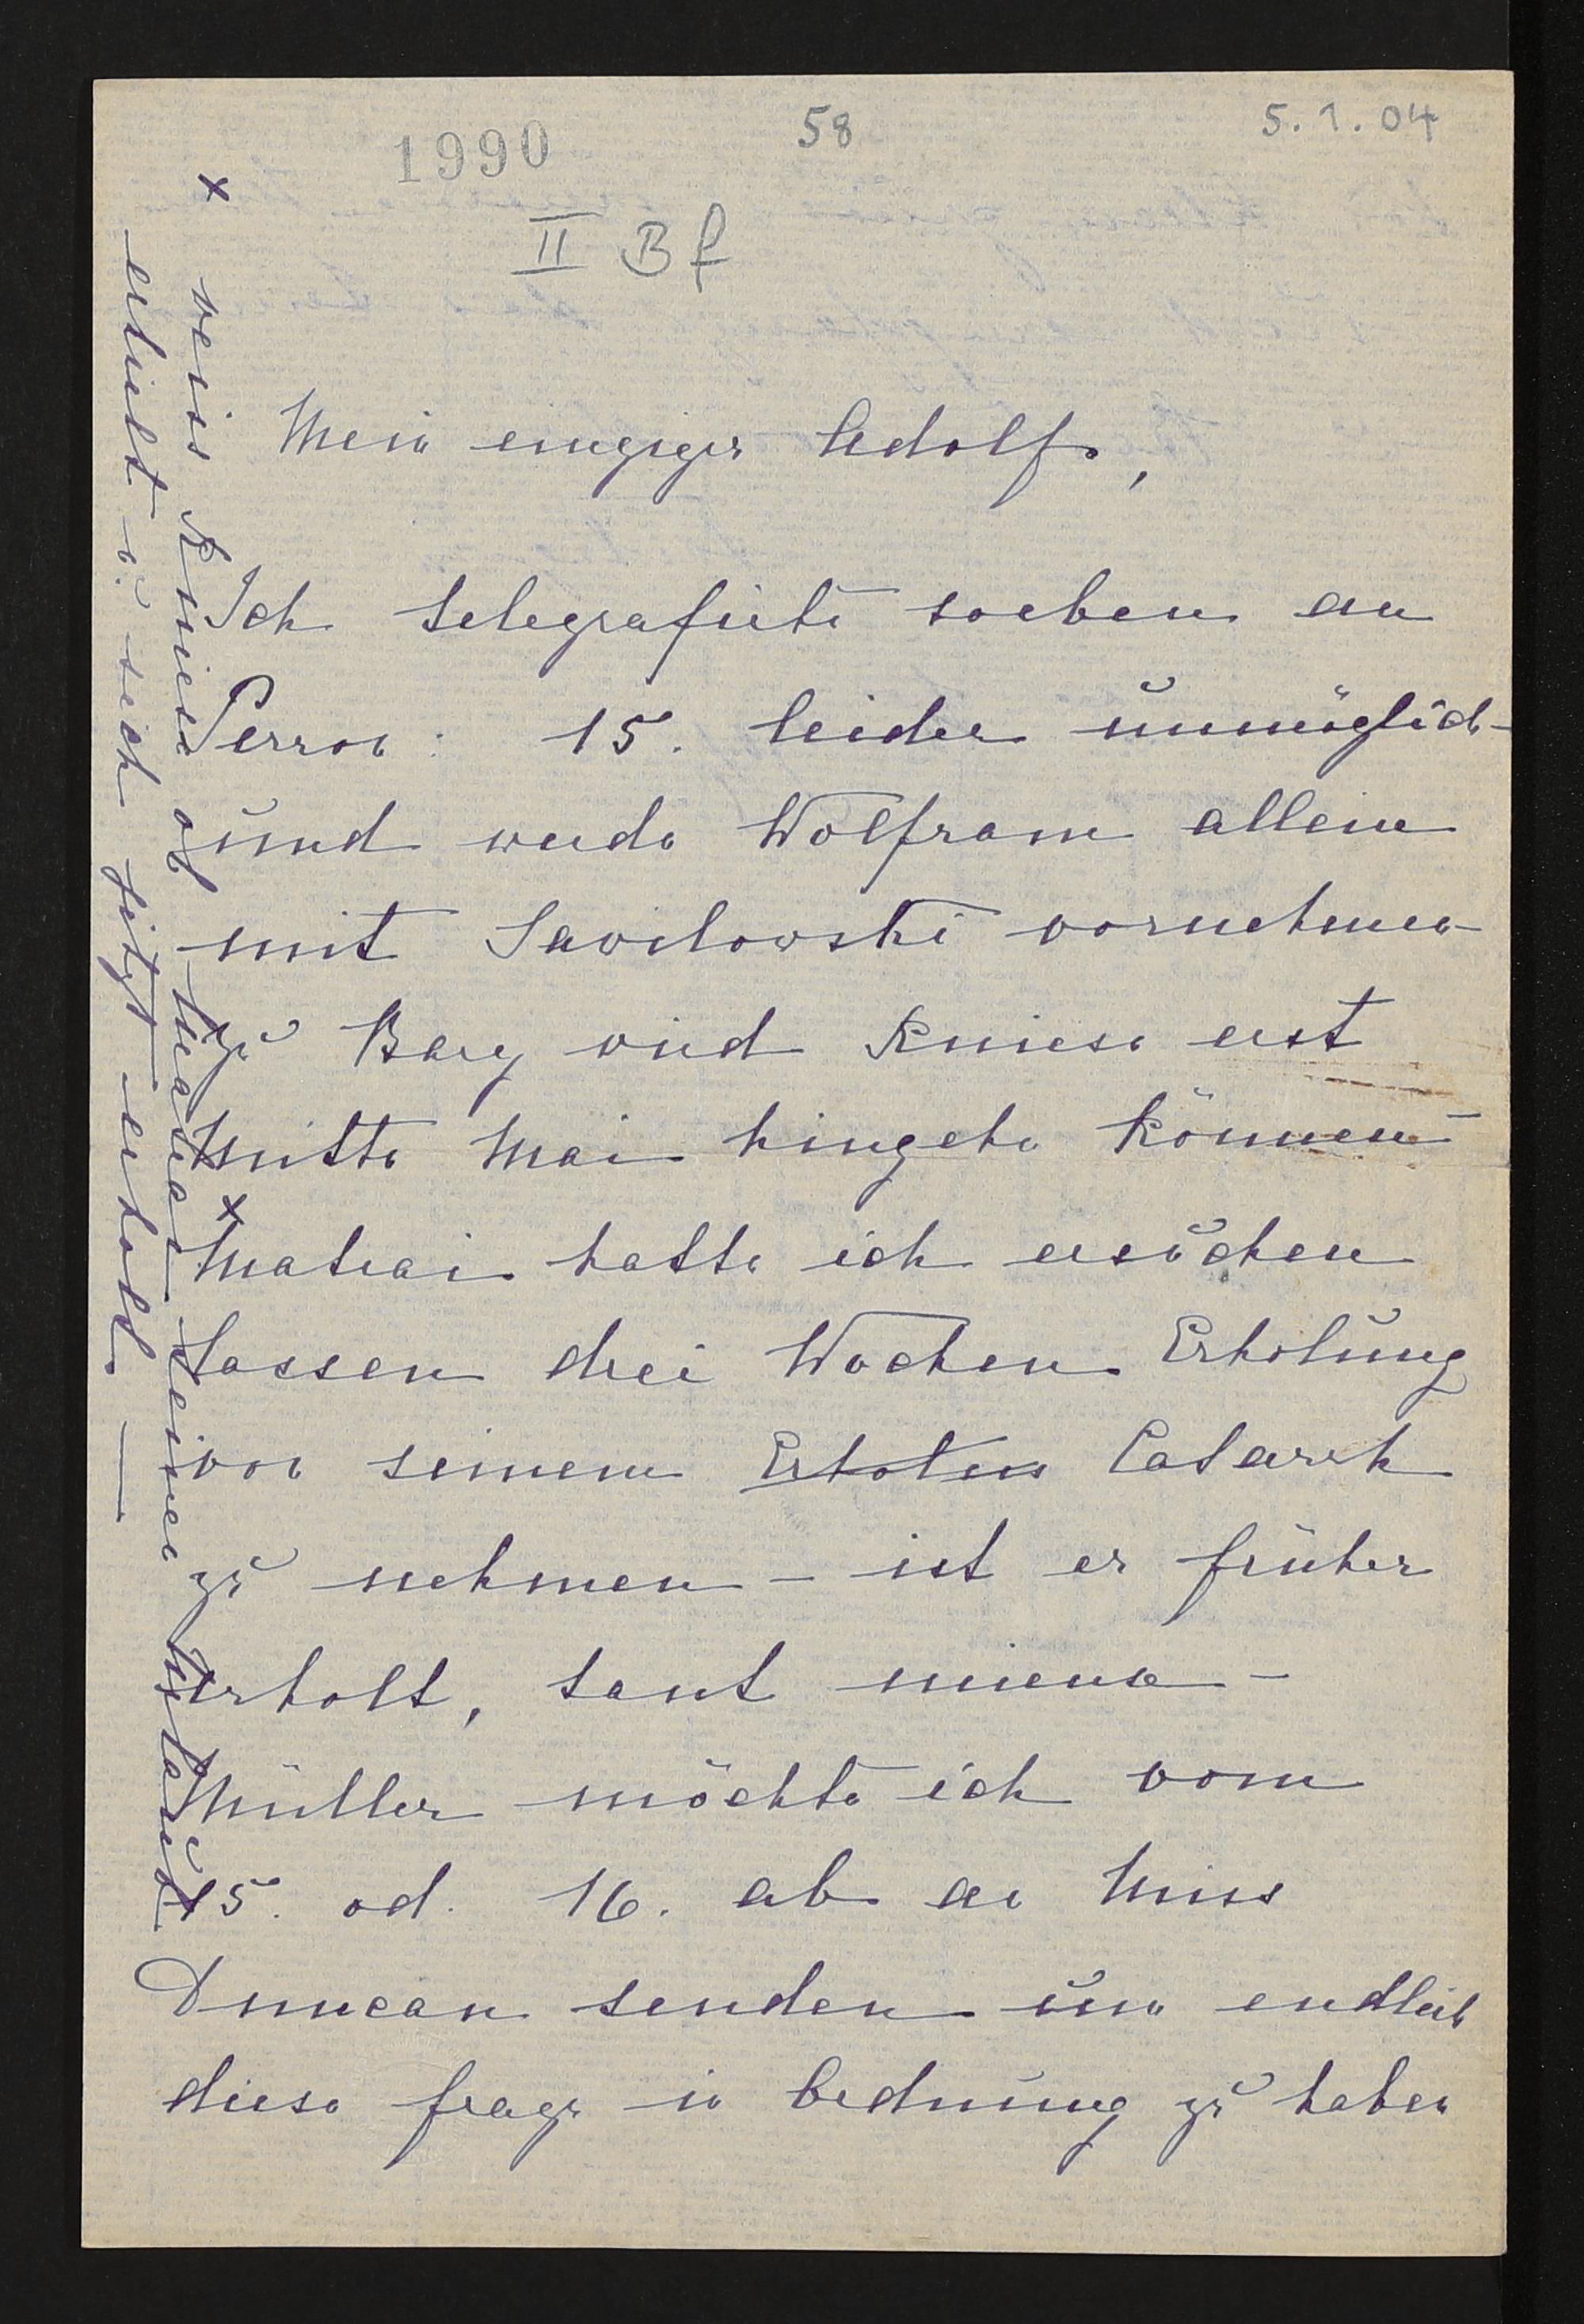 1990
58
5. 1. 04
II Bf
Mein einziger Adolf,
Ich telegrafirte soeben an
Perron: 15. leider unmöglich-
und werde Wolfram allein
mit Sawilowski vornehmen-
zu Bary wird Kniese erst
Mitte Mai hingehen können-
x
Matrai hatte ich ersuchen
lassen drei Wochen Erholung
von seinem Erholun Catarrh
zu nehmen - ist er früher
erholt, tant mieux -
Müller möchte ich vom
15. od. 16. ab an Miss
Duncan senden um endlich
diese Frage in Ordnung zu haben
x weiss Kniese ob Matrai seinen Urlaub
erhielt u. sich jetzt erholt. —